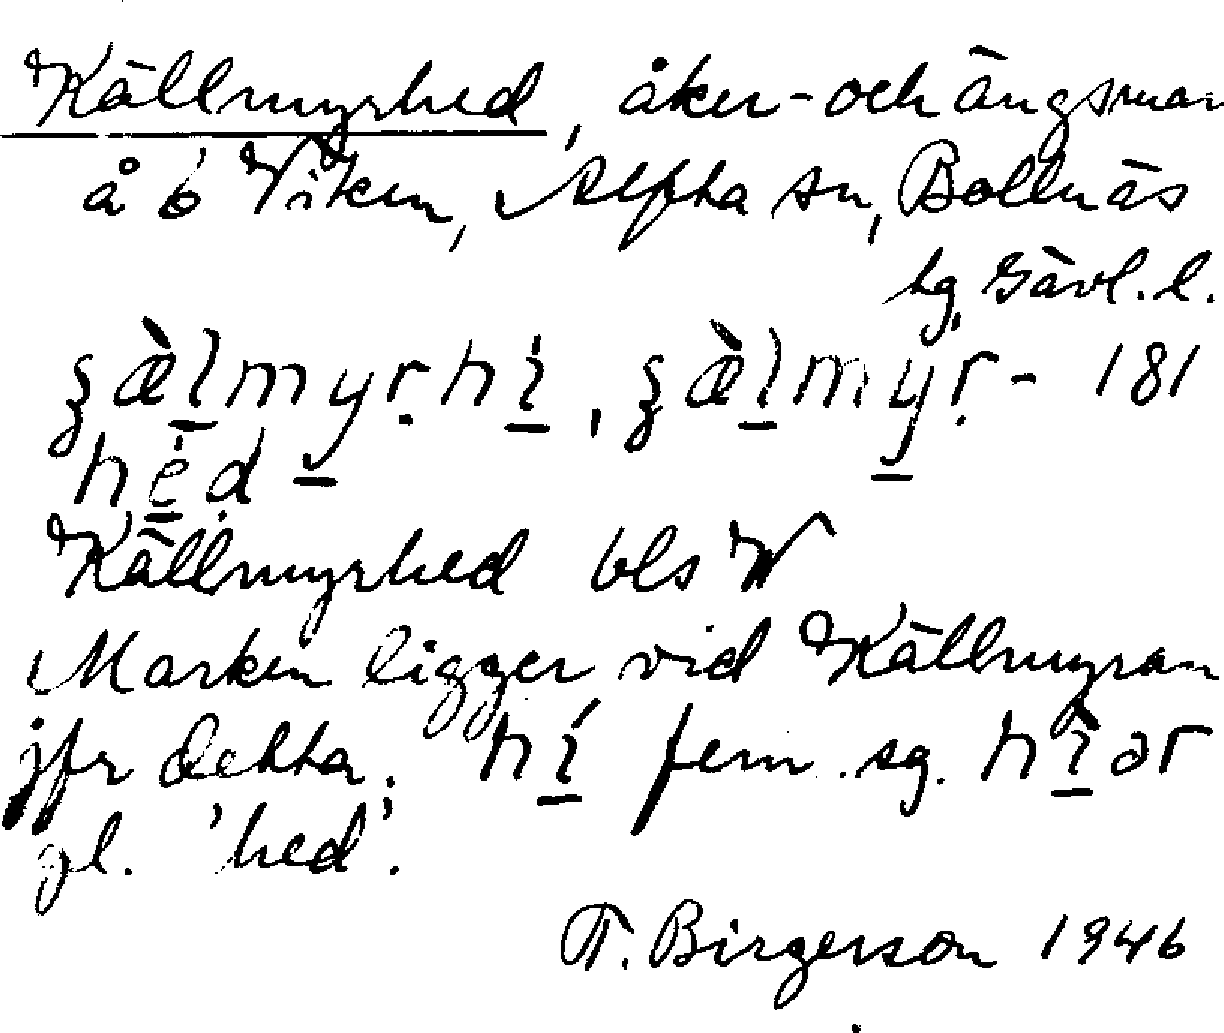 Källmyrhed, åker- och ängsmar
å 6 Viken, Alfta sn, Bollnäs
tg Gävl. l.
ʂæ̀lmyrhi, ʂæ̀lmyr- 181
hed
Källmyrhed bls W
Marken ligger vid Källmyran
jfr detta. hí fem. sg. hìar
pl. 'hed'.
T. Birgerson 1946